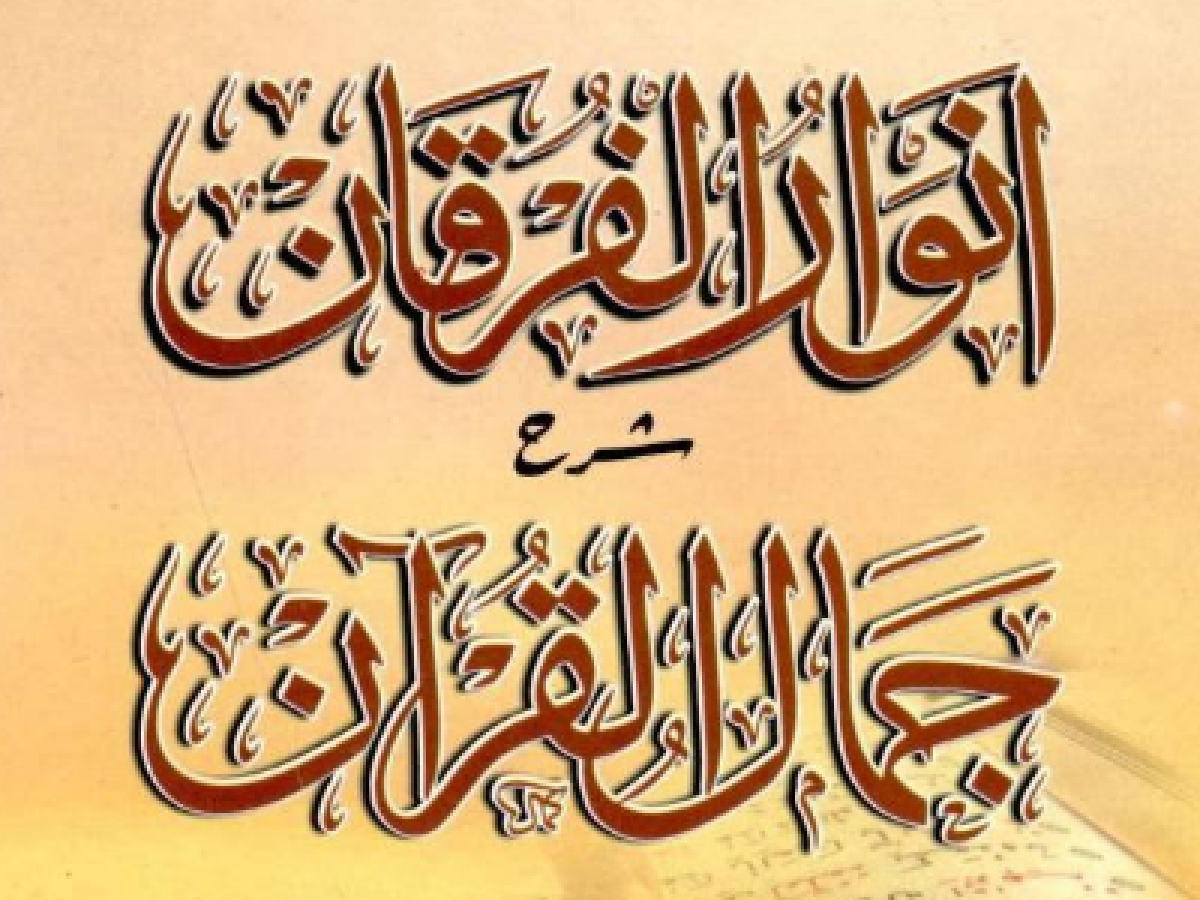 اَنْوَارُ الْفُرْقَانْ
شرح
جَمَالُ الْقُرْآنْ